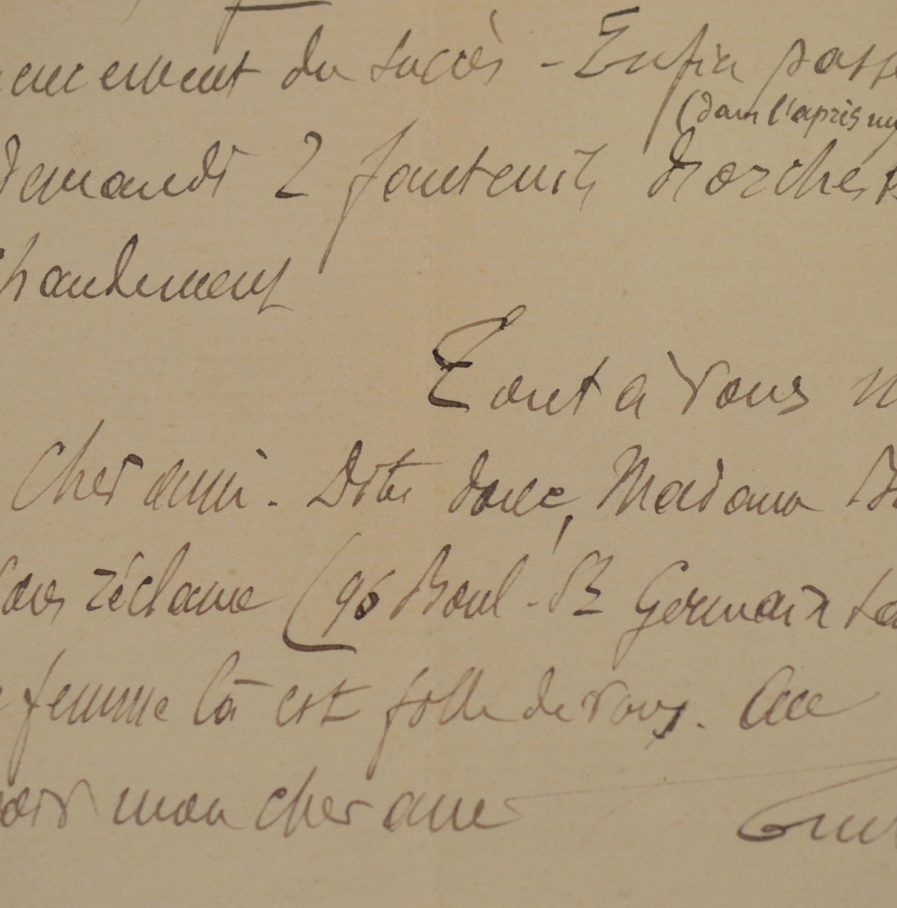 du succès - Enfin
(dans l'après
demandé 2 fauteuils d'orchest
chaudement
Tout à vous
Cher ami. Dites donc, Madame
vous réclame (96 Boul - St Germain
femme là est folle de vous.
mon cher ami